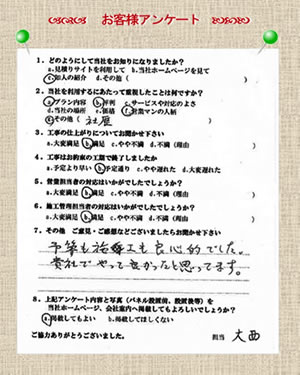 お客様アンケート
1. どのようにして当社をお知りになりましたか?
a.見積りサイトを利用して b.当社ホームページを見て
c.知人の紹介 d.その他 ( )
2. 当社を利用するにあたって重視したことは何ですか?
a.プラン内容 b.評判 c.サービスや対応のよさ
d.当社の場所 e.価格 f.営業マンの人柄
g.その他 ( 社屋 )
3. 工事の仕上がりについてお聞かせ下さい
a.大変満足 b.満足 c.やや不満 d.不満 (理由 )
4. 工事はお約束の工期で終了しましたか
a.予定より早い b.予定通り c.やや遅れた d.大変遅れた
5. 営業担当者の対応はいかがでしたでしょうか?
a.大変満足 b.満足 c.やや不満 d.不満 (理由 )
6. 施工管理担当者の対応はいかがでしたでしょうか?
a.大変満足 b.満足 c.やや不満 d.不満 (理由 )
7. その他 ご意見・ご感想などございましたらお聞かせ下さい
も良心的でした。
貴社でやって良かったと思ってます。
8. 上記アンケート内容と写真(パネル設置前、設置後等)を
当社ホームページ、会社案内へ掲載してもよろしいでしょうか?
a.掲載してもよい b.掲載してほしくない
ご協力ありがとうございました。 担当 大西